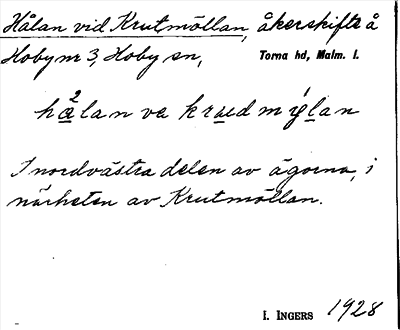 Hålan vid Krutmöllan, åkerskifte å
Hoby nr 3, Hoby sn, Torna hd, Malm. l.
hå²lan va krudmýlan
I nordvästra delen av ägorna, i
närheten av Krutmöllan.
I. INGERS 1928